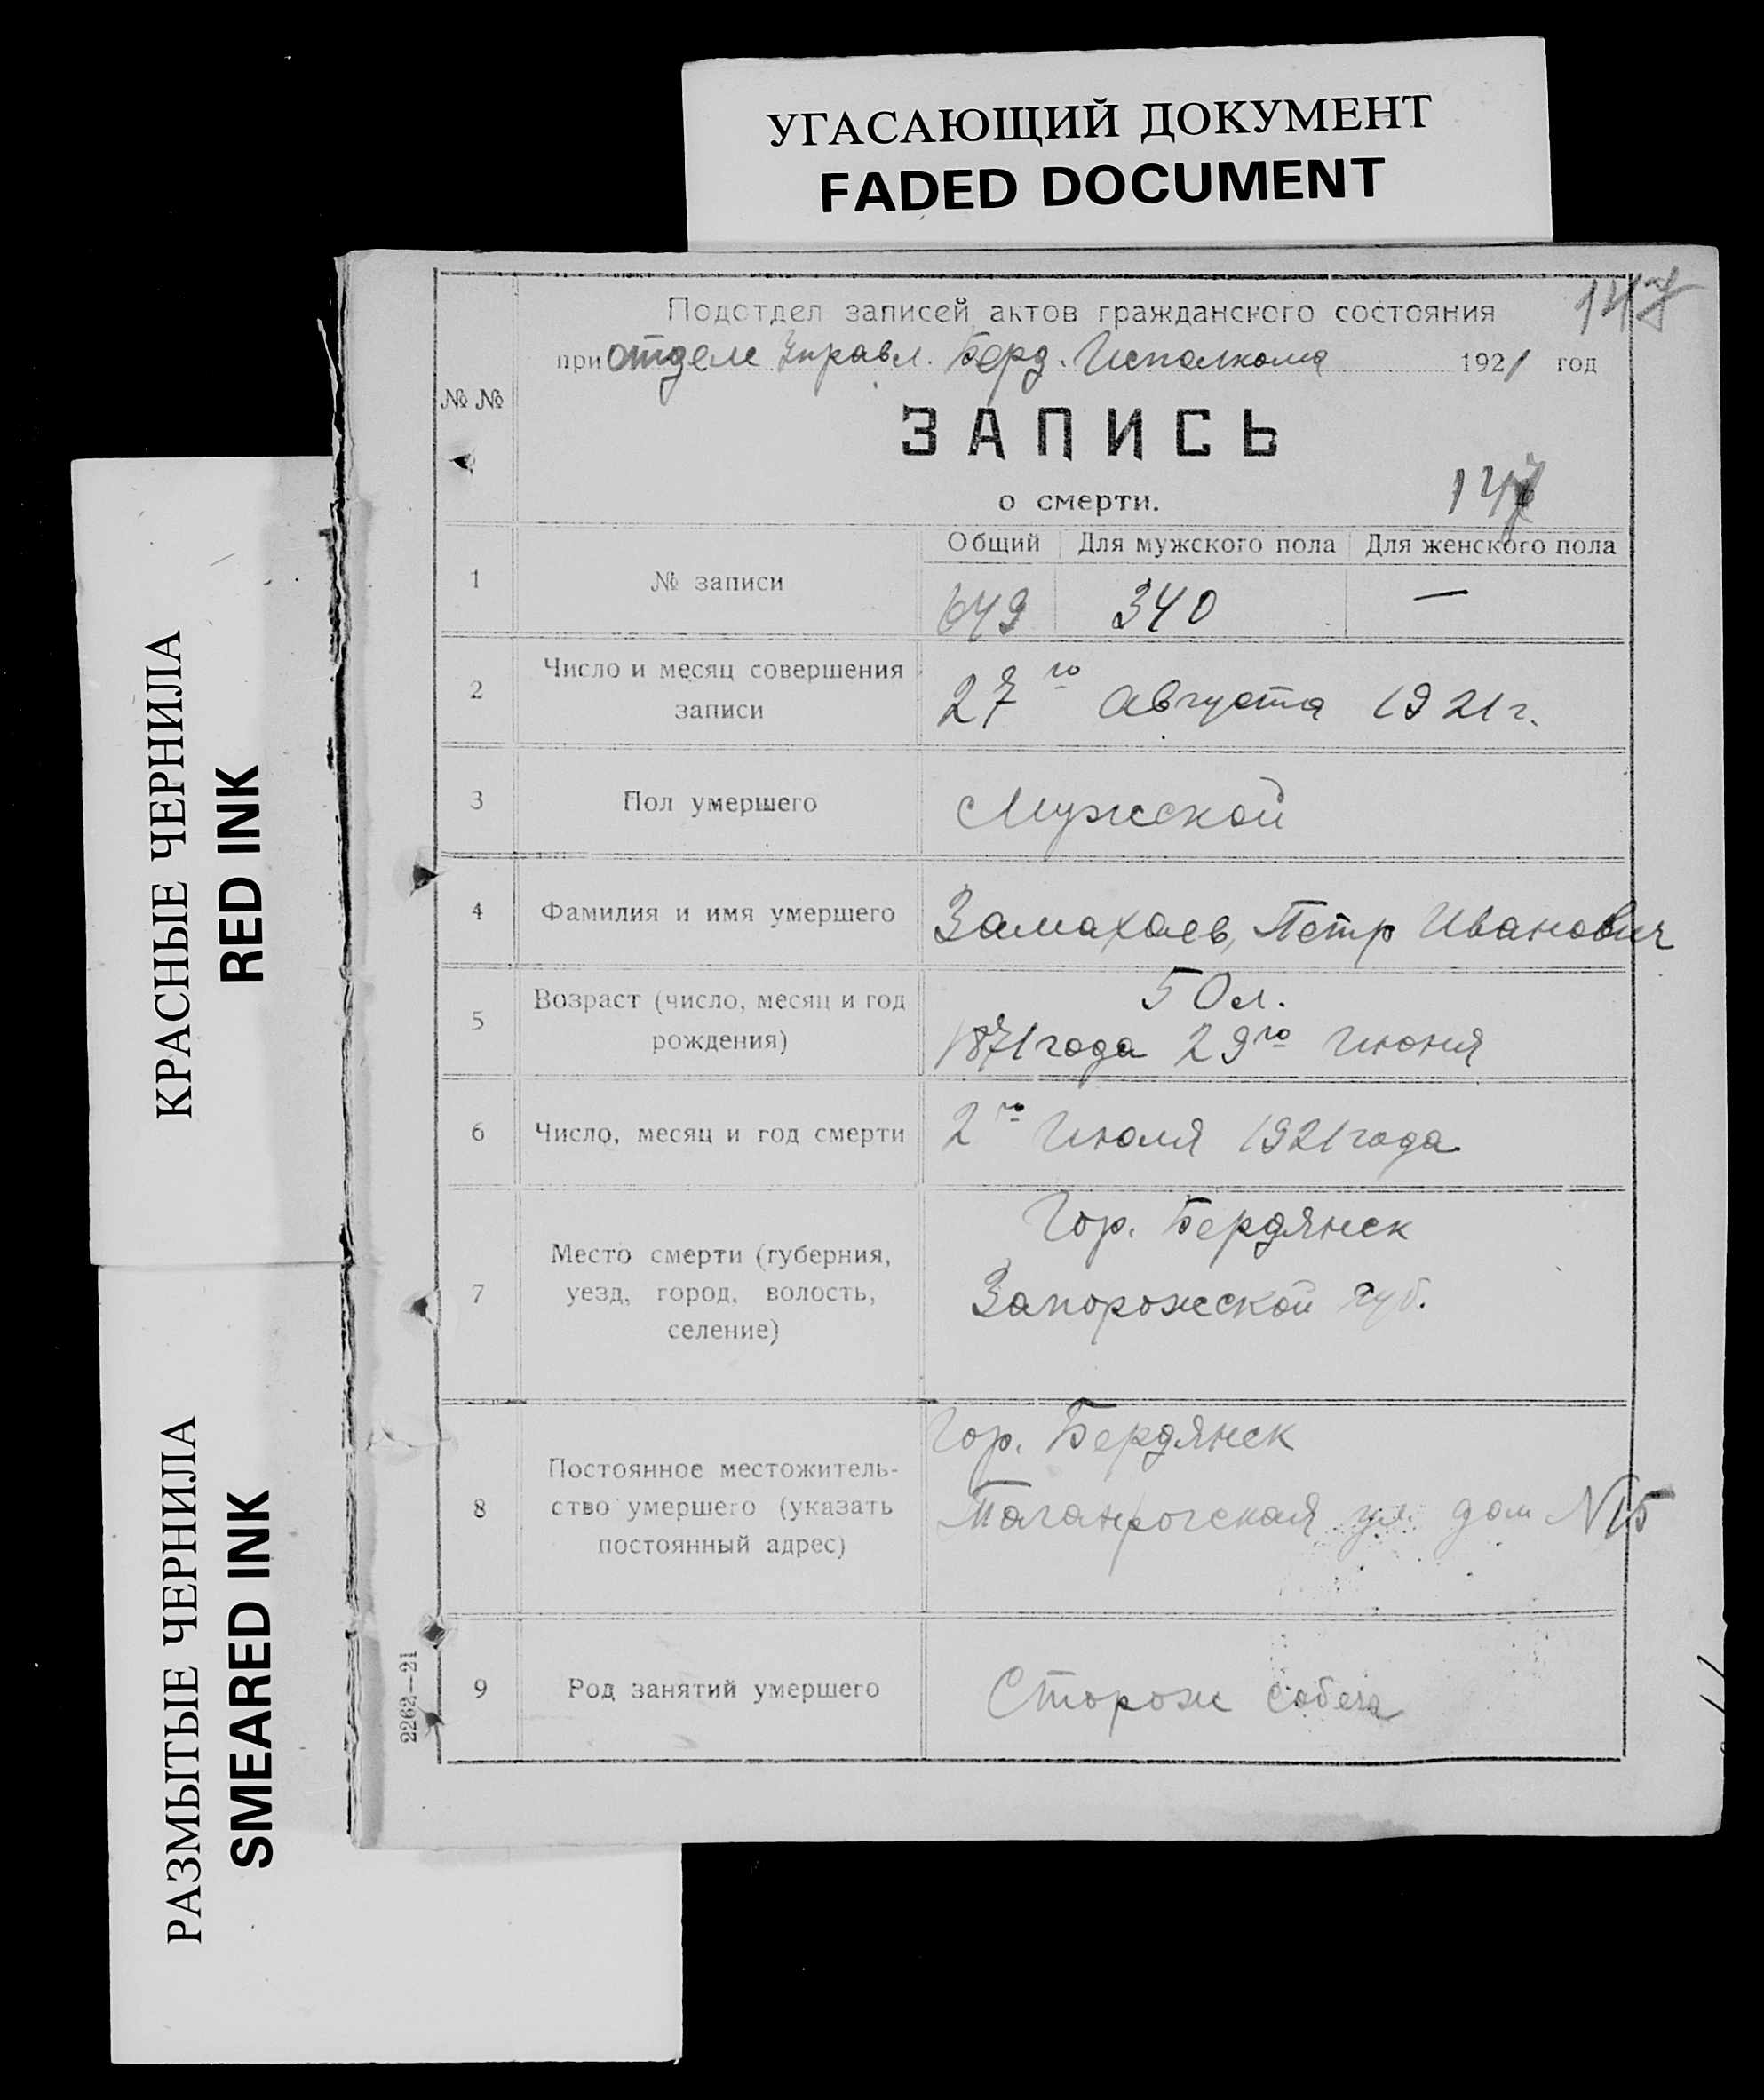 УГАСАЮЩИЙ ДОКУМЕНТ
FADED DOCUMENT
КРАСНЫЕ ЧЕРНИЛА
RED INK
РАЗМЫТЫЕ ЧЕРНИЛА
SMEARED INK
147
Подотдел записей актов гражданского состояния
при отделе Управл. Берд. Исполкома 1921 год
№ №
ЗАПИСЬ
о смерти.
147
Общий Для мужского пола Для женского пола
1 № записи 649 340 —
2 Число и месяц совершения
записи
27го Августа 1921 г.
3 Пол умершего Мужской
4 Фамилия и имя умершего Замахаев, Петр Иванович
5 Возраст (число, месяц и год
рождения)
50 л.
1871 года 29го Июня
6 Число, месяц и год смерти 2го Июля 1921 года
7 Место смерти (губерния,
уезд, город, волость,
селение)
Гор. Бердянск
Запорожской губ.
8 Постоянное местожитель-
ство умершего (указать
постоянный адрес)
Гор. Бердянск
Таганрогская ул. дом N 15
9 Род занятий умершего Сторож собеса
2262—21